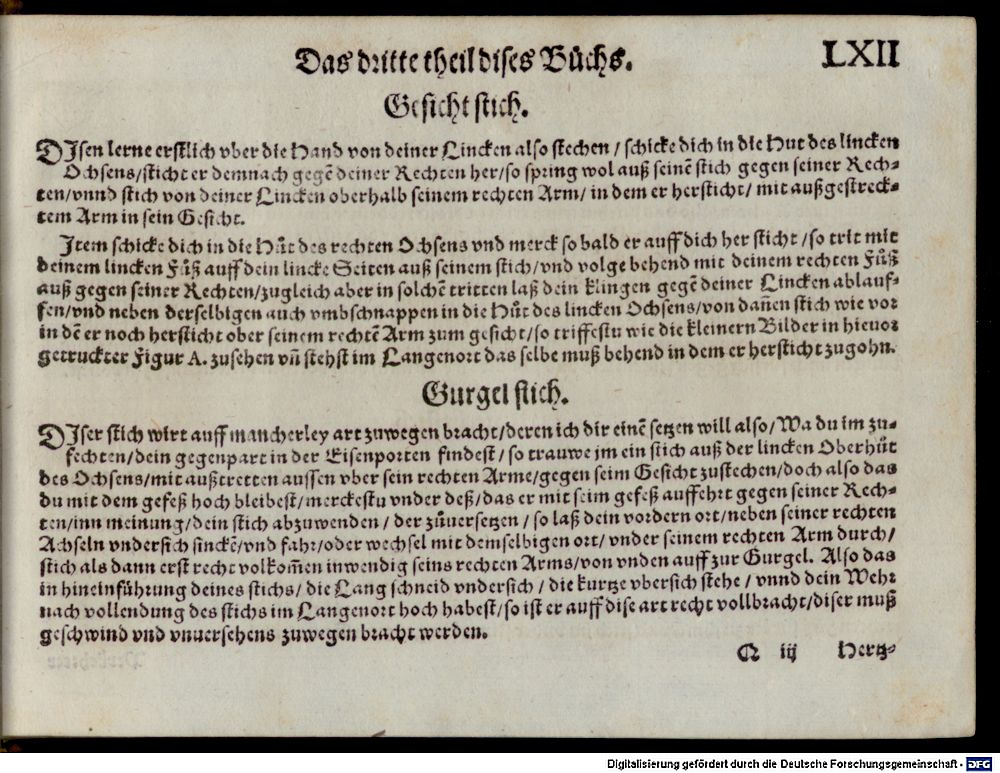 Das dritte theil dises Bůchs.
LXII
Gesicht stich.
DIsen lerne erstlich vber die Hand von deiner Lincken also stechen / schicke dich in die Hut des lincken
Ochsens / sticht er demnach gegẽ deiner Rechten her / so spring wol auß seinẽ stich gegen seiner Rech⸗
ten / vnnd stich von deiner Lincken oberhalb seinem rechten Arm / in dem er hersticht / mit außgestreck⸗
tem Arm in sein Gesicht.
Item schicke dich in die Hůt des rechten Ochsens vnd merck so bald er auff dich her sticht / so trit mit
deinem lincken Fůß auff dein lincke Seiten auß seinem stich / vnd volge behend mit deinem rechten Fůß
auß gegen seiner Rechten / zugleich aber in solchẽ tritten laß dein klingen gegẽ deiner Lincken ablauf⸗
fen / vnd neben derselbigen auch vmbschnappen in die Hůt des lincken Ochsens / von dañen stich wie vor
in dẽ er noch hersticht ober seinem rechtẽ Arm zum gesicht / so triffestu wie die kleinern Bilder in hieuor
getruckter Figur A. zusehen vñ stehst im Langenort das selbe muß behend in dem er hersticht zugohn.
Gurgel stich.
DIser stich wirt auff mancherley art zuwegen bracht / deren ich dir einẽ setzen will also / Wa du im zu⸗
fechten / dein gegenpart in der Eisenporten findest / so trauwe jm ein stich auß der lincken Oberhůt
des Ochsens / mit außtretten aussen vber sein rechten Arme / gegen seim Gesicht zustechen / doch also das
du mit dem gefeß hoch bleibest / merckestu vnder deß / das er mit seim gefeß auffehrt gegen seiner Rech⸗
ten / inn meinung / dein stich abzuwenden / der zůuersetzen / so laß dein vordern ort / neben seiner rechten
Achseln vndersich sinckẽ / vnd fahr / oder wechsel mit demselbigen ort / vnder seinem rechten Arm durch /
stich als dann erst recht volkom̃en inwendig seins rechten Arms / von vnden auff zur Gurgel. Also das
in hineinführung deines stichs / die Lang schneid vndersich / die kurtze vbersich stehe / vnnd dein Wehr
nach vollendung des stichs im Langenort hoch habest / so ist er auff dise art recht vollbracht / diser muß
geschwind vnd vnuersehens zuwegen bracht werden.
Q iij Hertz⸗
Digitalisierung gefördert durch die Deutsche Forschungsgemeinschaft - DFG